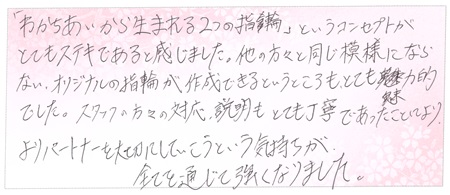 「わかちあいから生まれる2つの指輪」というコンセプトが
とてもステキであると感じました。他の方々と同じ模様になら
ない、オリジナルの指輪が、作成できるというところも、とても魅力的
でした。スタッフの方々の対応、説明もとても丁寧であったことにより、
よりパートナーを大切にしていこうという気持ちが、
全てを通じて強くなりました。